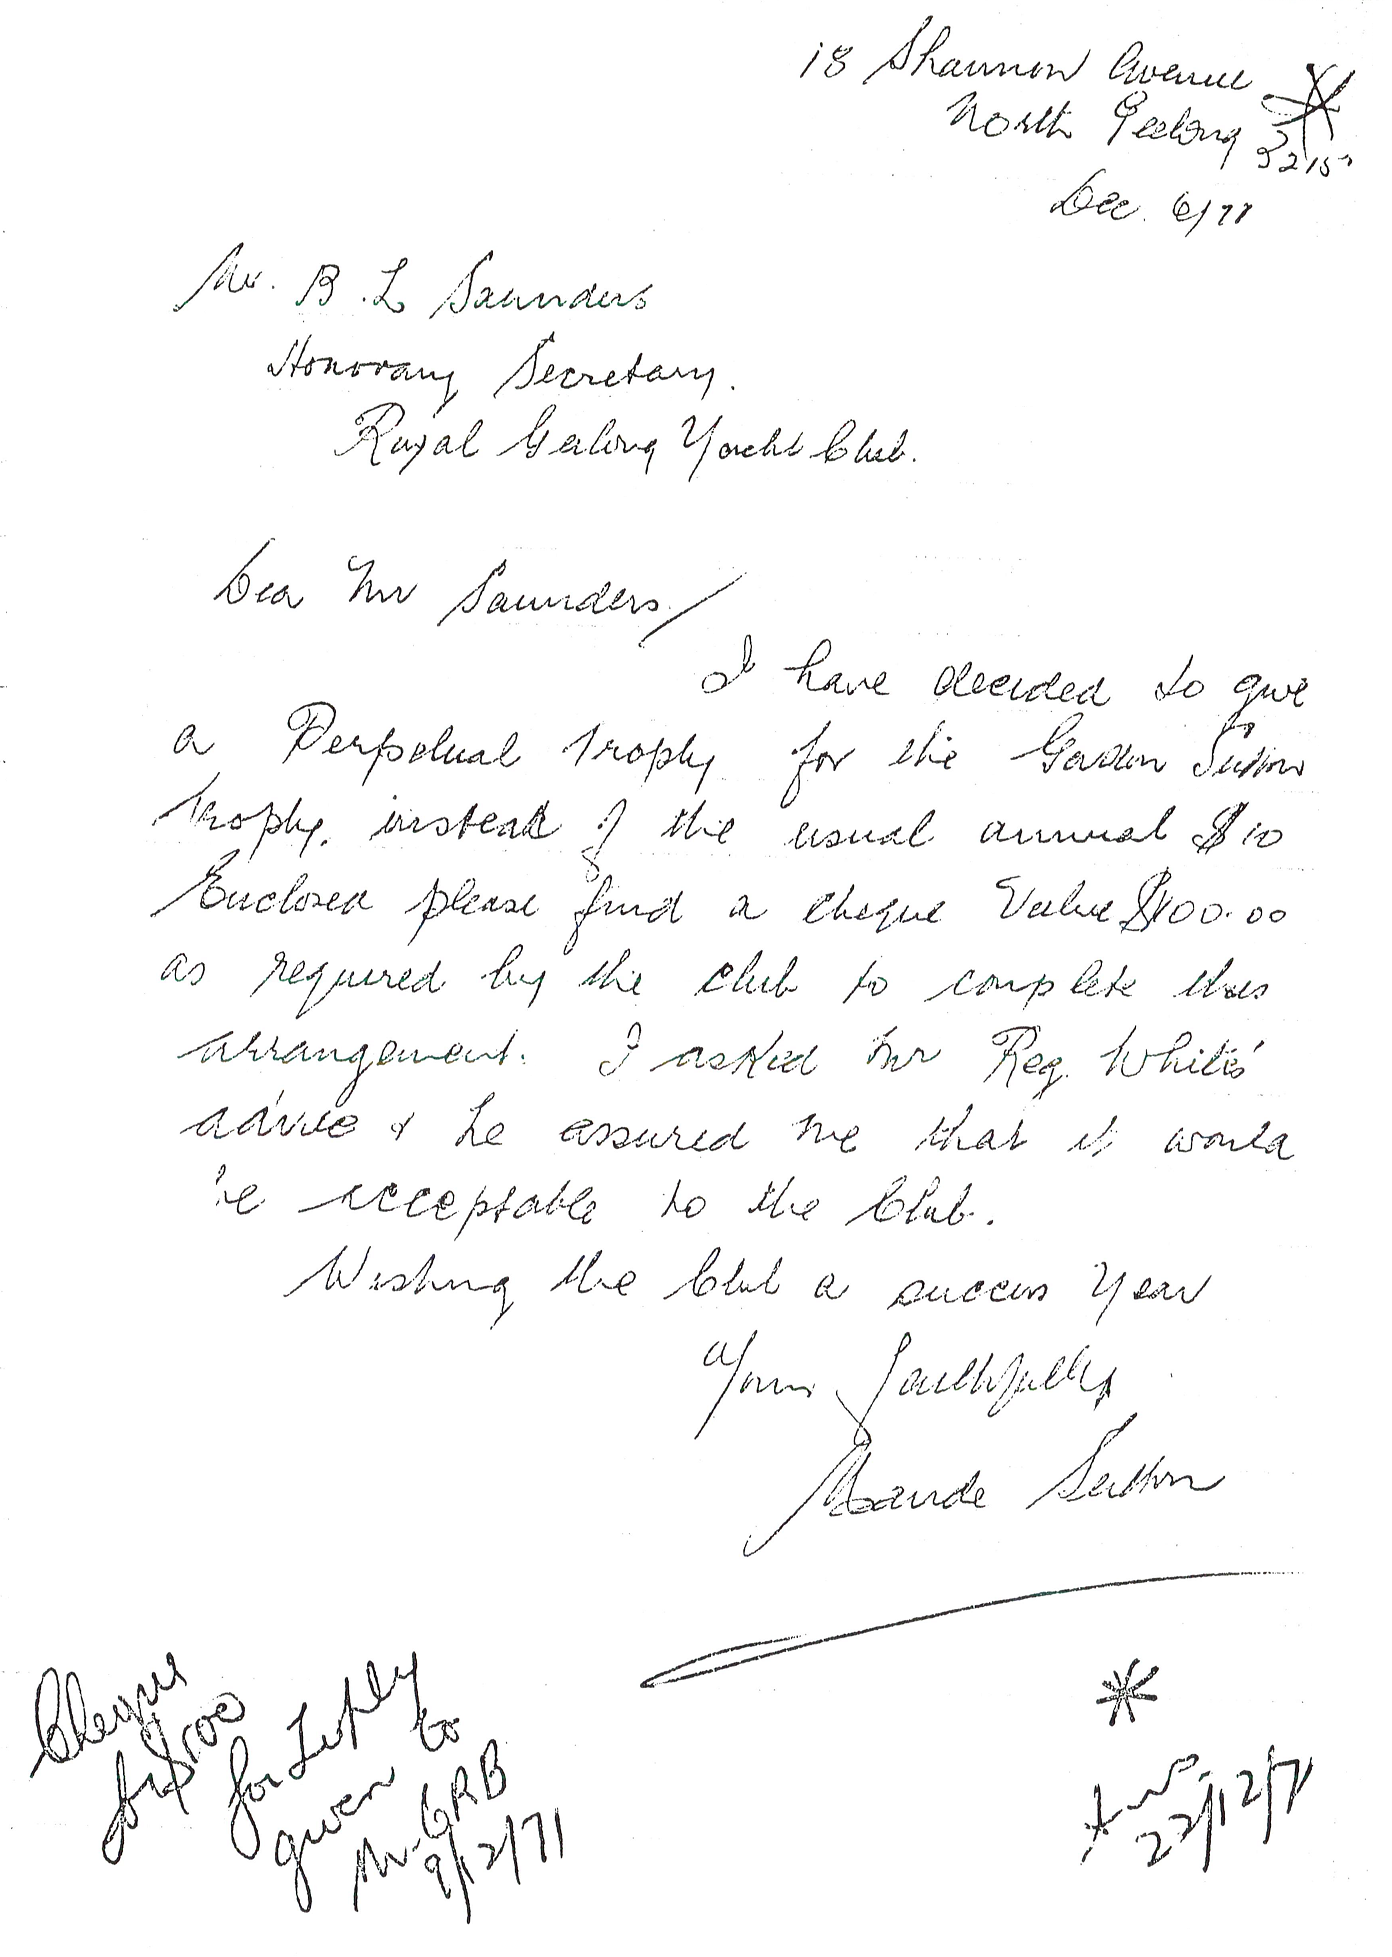 18 Shannon Avenue
North Geelong
3215
Dec. 6/71
Mr. B. L Saunders
Honorary Secretary.
Royal Geelong Yacht Club.
Dear Mr Saunders/
I have decided to give
a Perpetual Trophy for the Gordon Sutton
Trophy, instead of the usual annual $10
Enclosed please find a cheque Value $100.00
as required by the club to complete this
arrangement. I asked Mr Reg. White's
advice & he assured me that it would
be acceptable to the Club.
Wishing the Club a success Year
Yours faithfully
Maude Sutton
Cheque
for $100
for
given to
Mr. GRB
9/12/71
*
Ans.
22/12/71